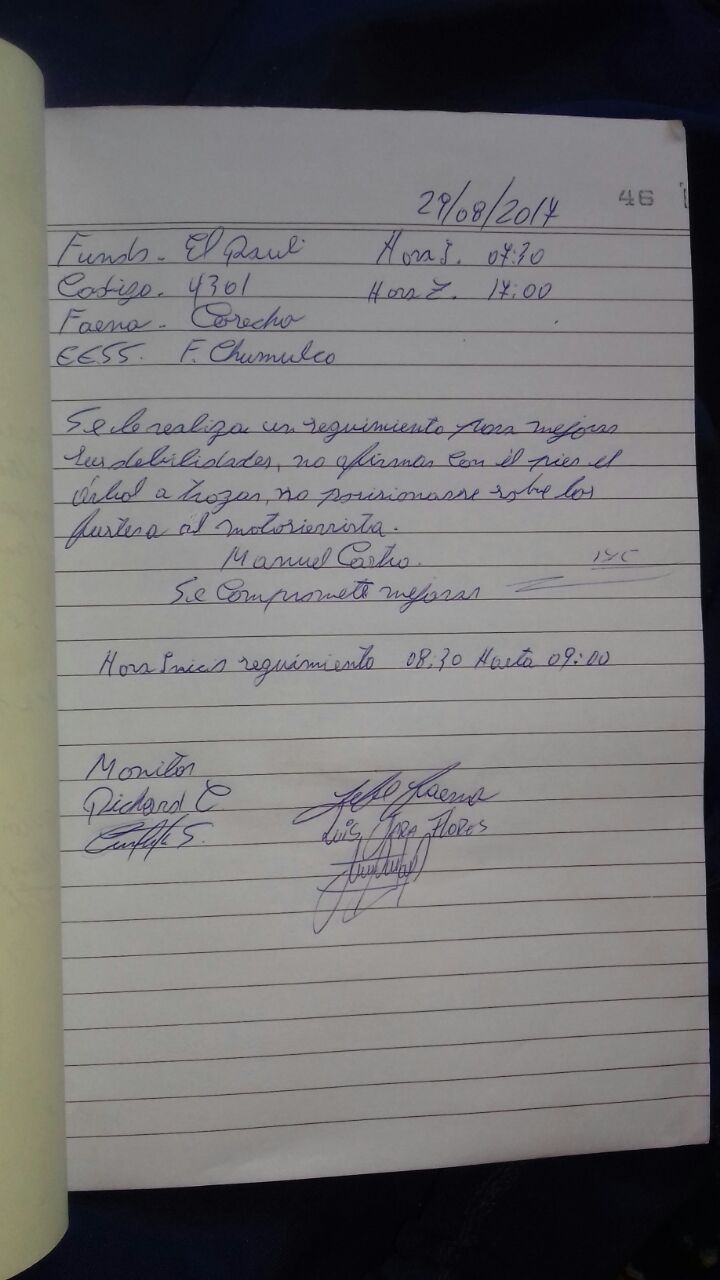 46
29/08/2017
Fundo. El Rauli Hora I. 07:30
Codigo. 4301 Hora T. 17:00
Faena. Cosecha
EESS. F. Chumulco
Se le realiza un seguimiento para mejorar
sus debilidades, no afirmar con el pies el
árbol a trozar, no posicionarse sobre los
fustes a al motosierrista.
Manuel Castro.
Se Compromete mejorar
Hora Inicio seguimiento 08:30 Hasta 09:00
Monitor
Richard C
Jefe Faena
LUIS JARA FLORES